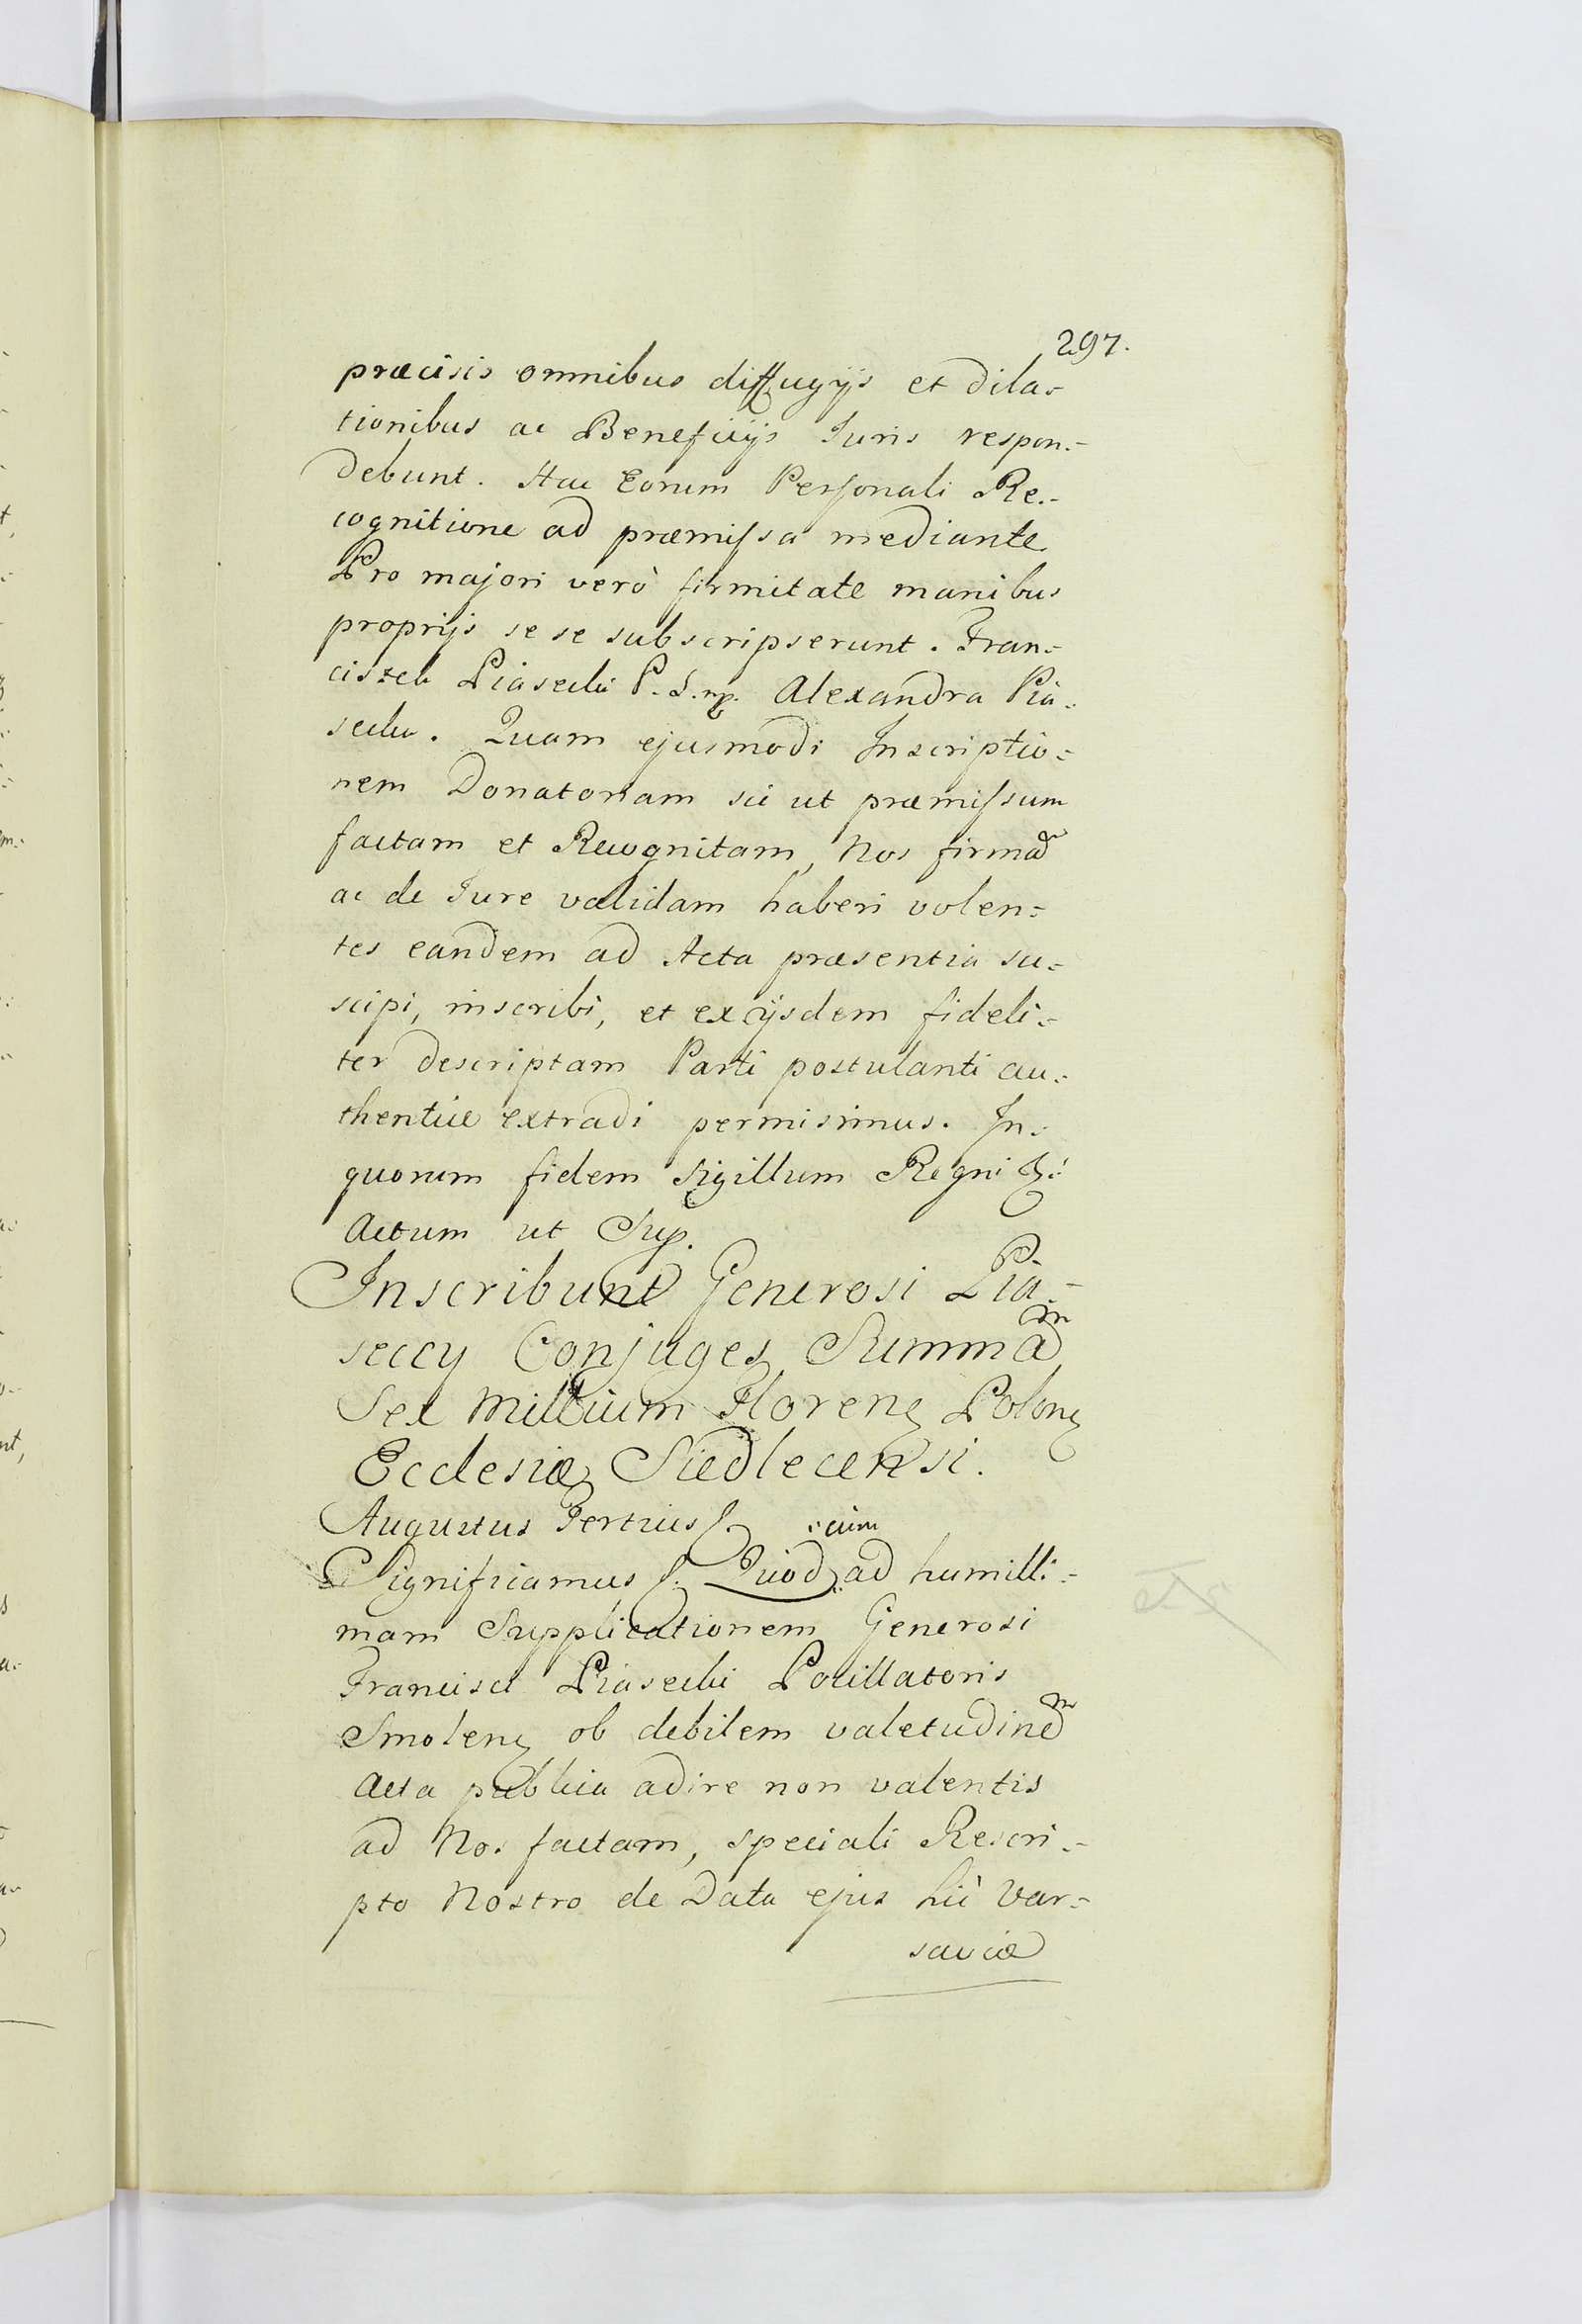 297.
præcisis omnibus diffugijs et dila-
tionibus ac Beneficijs Juris respon-
debunt. Hac Eorum Personali Re-
cognitione ad præmissa mediante.
Pro majori verò firmitate manibus
proprijs se se subscripserunt. Fran-
ciszek Piasecki P. S. mp. Alexandra Pia-
secka. Quam ejusmodi Inscriptio-
nem Donatoriam sic ut præmissum
factam et Recognitam, Nos firmam
ac de Jure validam haberi volen-
tes eandem ad Acta præsentia su-
scipi, inscribi, et ex ijsdem fideli-
ter descriptam Parti postulanti au-
thentice extradi permisimus. In
quorum fidem Sigillum Regni &:
Actum ut Sup.
Inscribunt Generosi Pia-
seccy Conjuges Summam
Sex Millium Floren Polon
Ecclesiæ Siedlecensi.
Augustus Tertius &.
Significamus &. Quod cum ad humilli-
mam Supplicationem Generosi
Francisci Piasecki Pocillatoris
Smolen ob debilem valetudinem
Acta publica adire non valentis
ad Nos factam, speciali Rescri-
pto Nostro de Data ejus hic Var-
saviæ